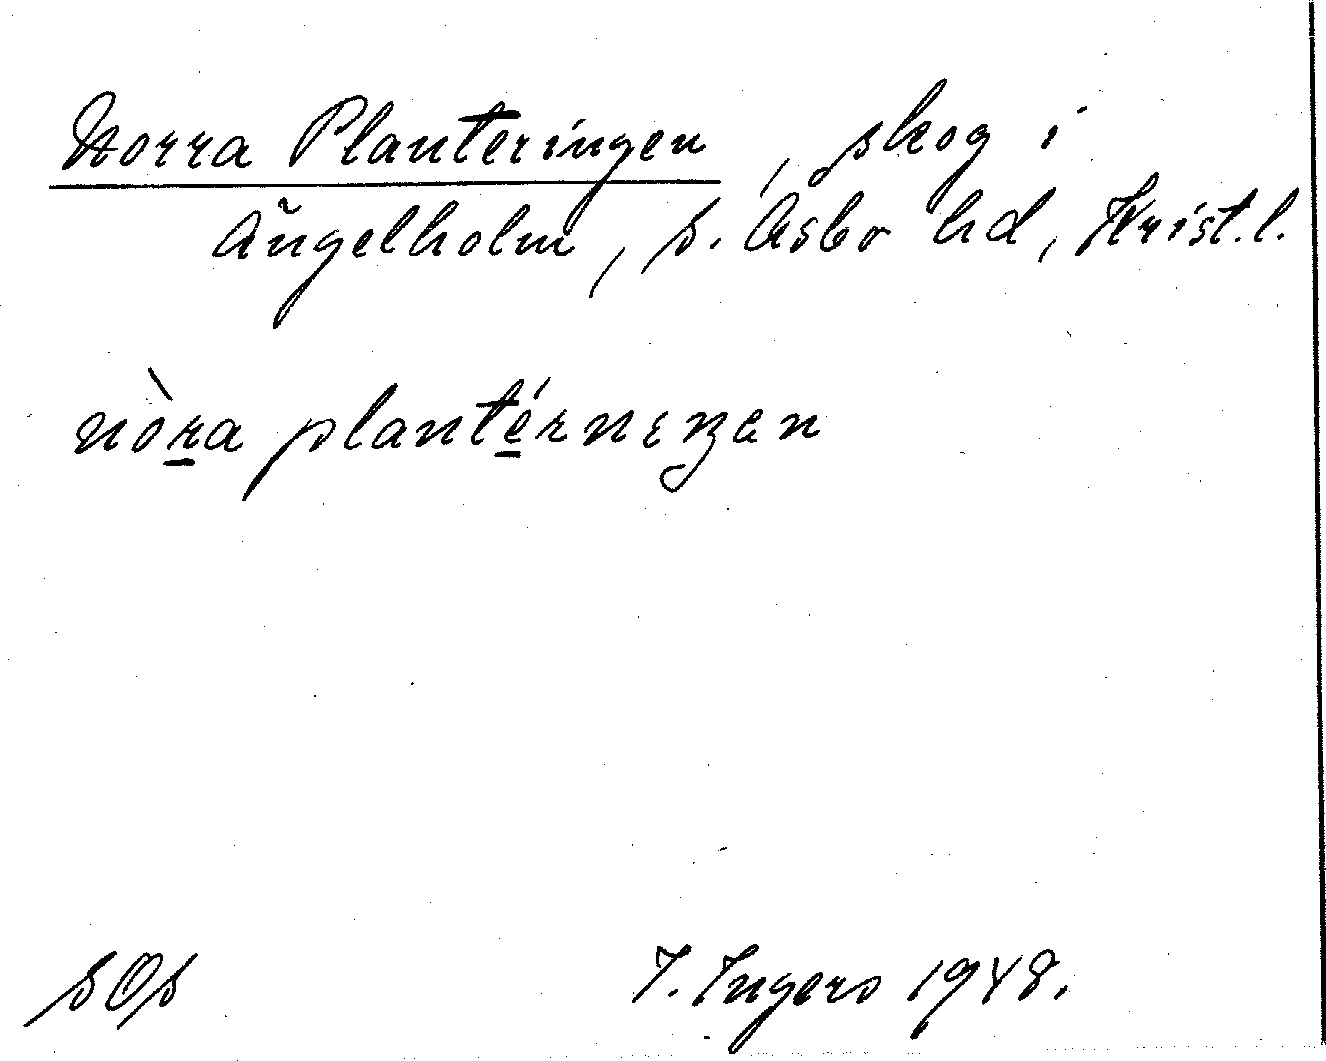 Norra Planteringen, skog i
Ängelholm, S. Åsbo hd, Krist. l.
nòra plantérnıŋen
SOS
I. Ingers 1948.